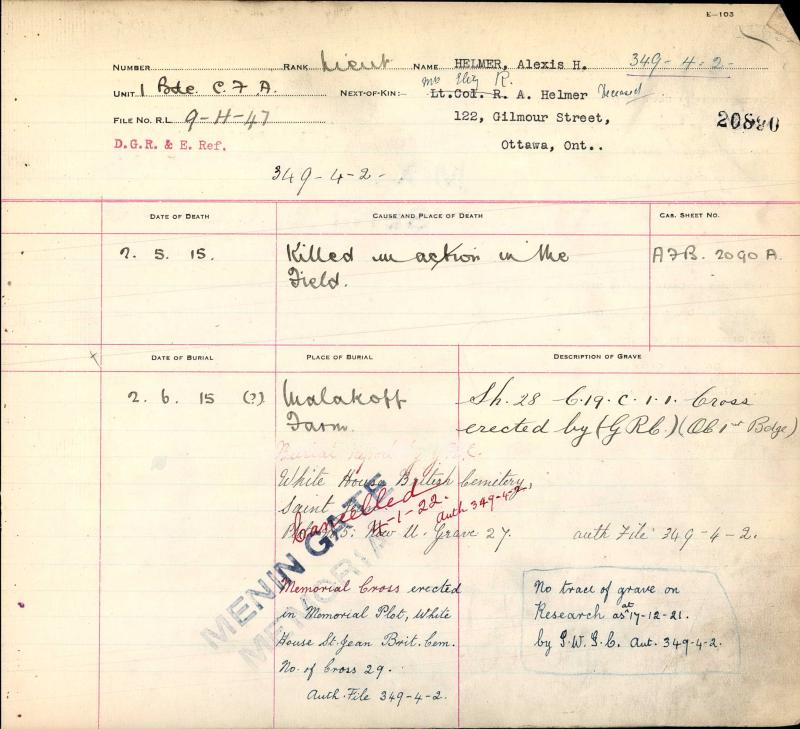 E—103
NUMBER RANK Lieut NAME HELMER, Alexis H. 349-4-2-
Mrs Eliz R.
UNIT 1 Bde C.F.A. NEXT-OF-KIN:— Lt.Col. R. A. Helmer Deceased
FILE NO. R.L. 9-H-47 122, Gilmour Street, 20890
D.G.R. & E. Ref. Ottawa, Ont..
349-4-2-
DATE OF DEATH CAUSE AND PLACE OF DEATH CAS. SHEET NO.
2. 5. 15. Killed in action in the A.F.B. 2090 A.
Field.
DATE OF BURIAL PLACE OF BURIAL DESCRIPTION OF GRAVE
2. 6. 15 (?) Malakoff Sh. 28 C.19.c.1.1. Cross
Farm. erected by (G.R.C.) (OC 1st Bdge)
Burial Report by G.R.C.
White House British Cemetery,
Saint
Cancelled 4-1-22. Auth 349-4-2
Row U. Grave 27. auth File 349-4-2.
MENIN GATE
MEMORIAL
Memorial Cross erected
in Memorial Plot, White
House St. Jean Brit. Cem.
No. of Cross 29.
Auth. File 349-4-2.
No trace of grave on
Research as at 17-12-21.
by I.W.G.C. Aut. 349-4-2.